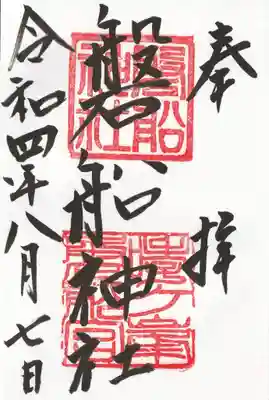 奉拝
磐船神社
磐船
神社
令和四年八月七日